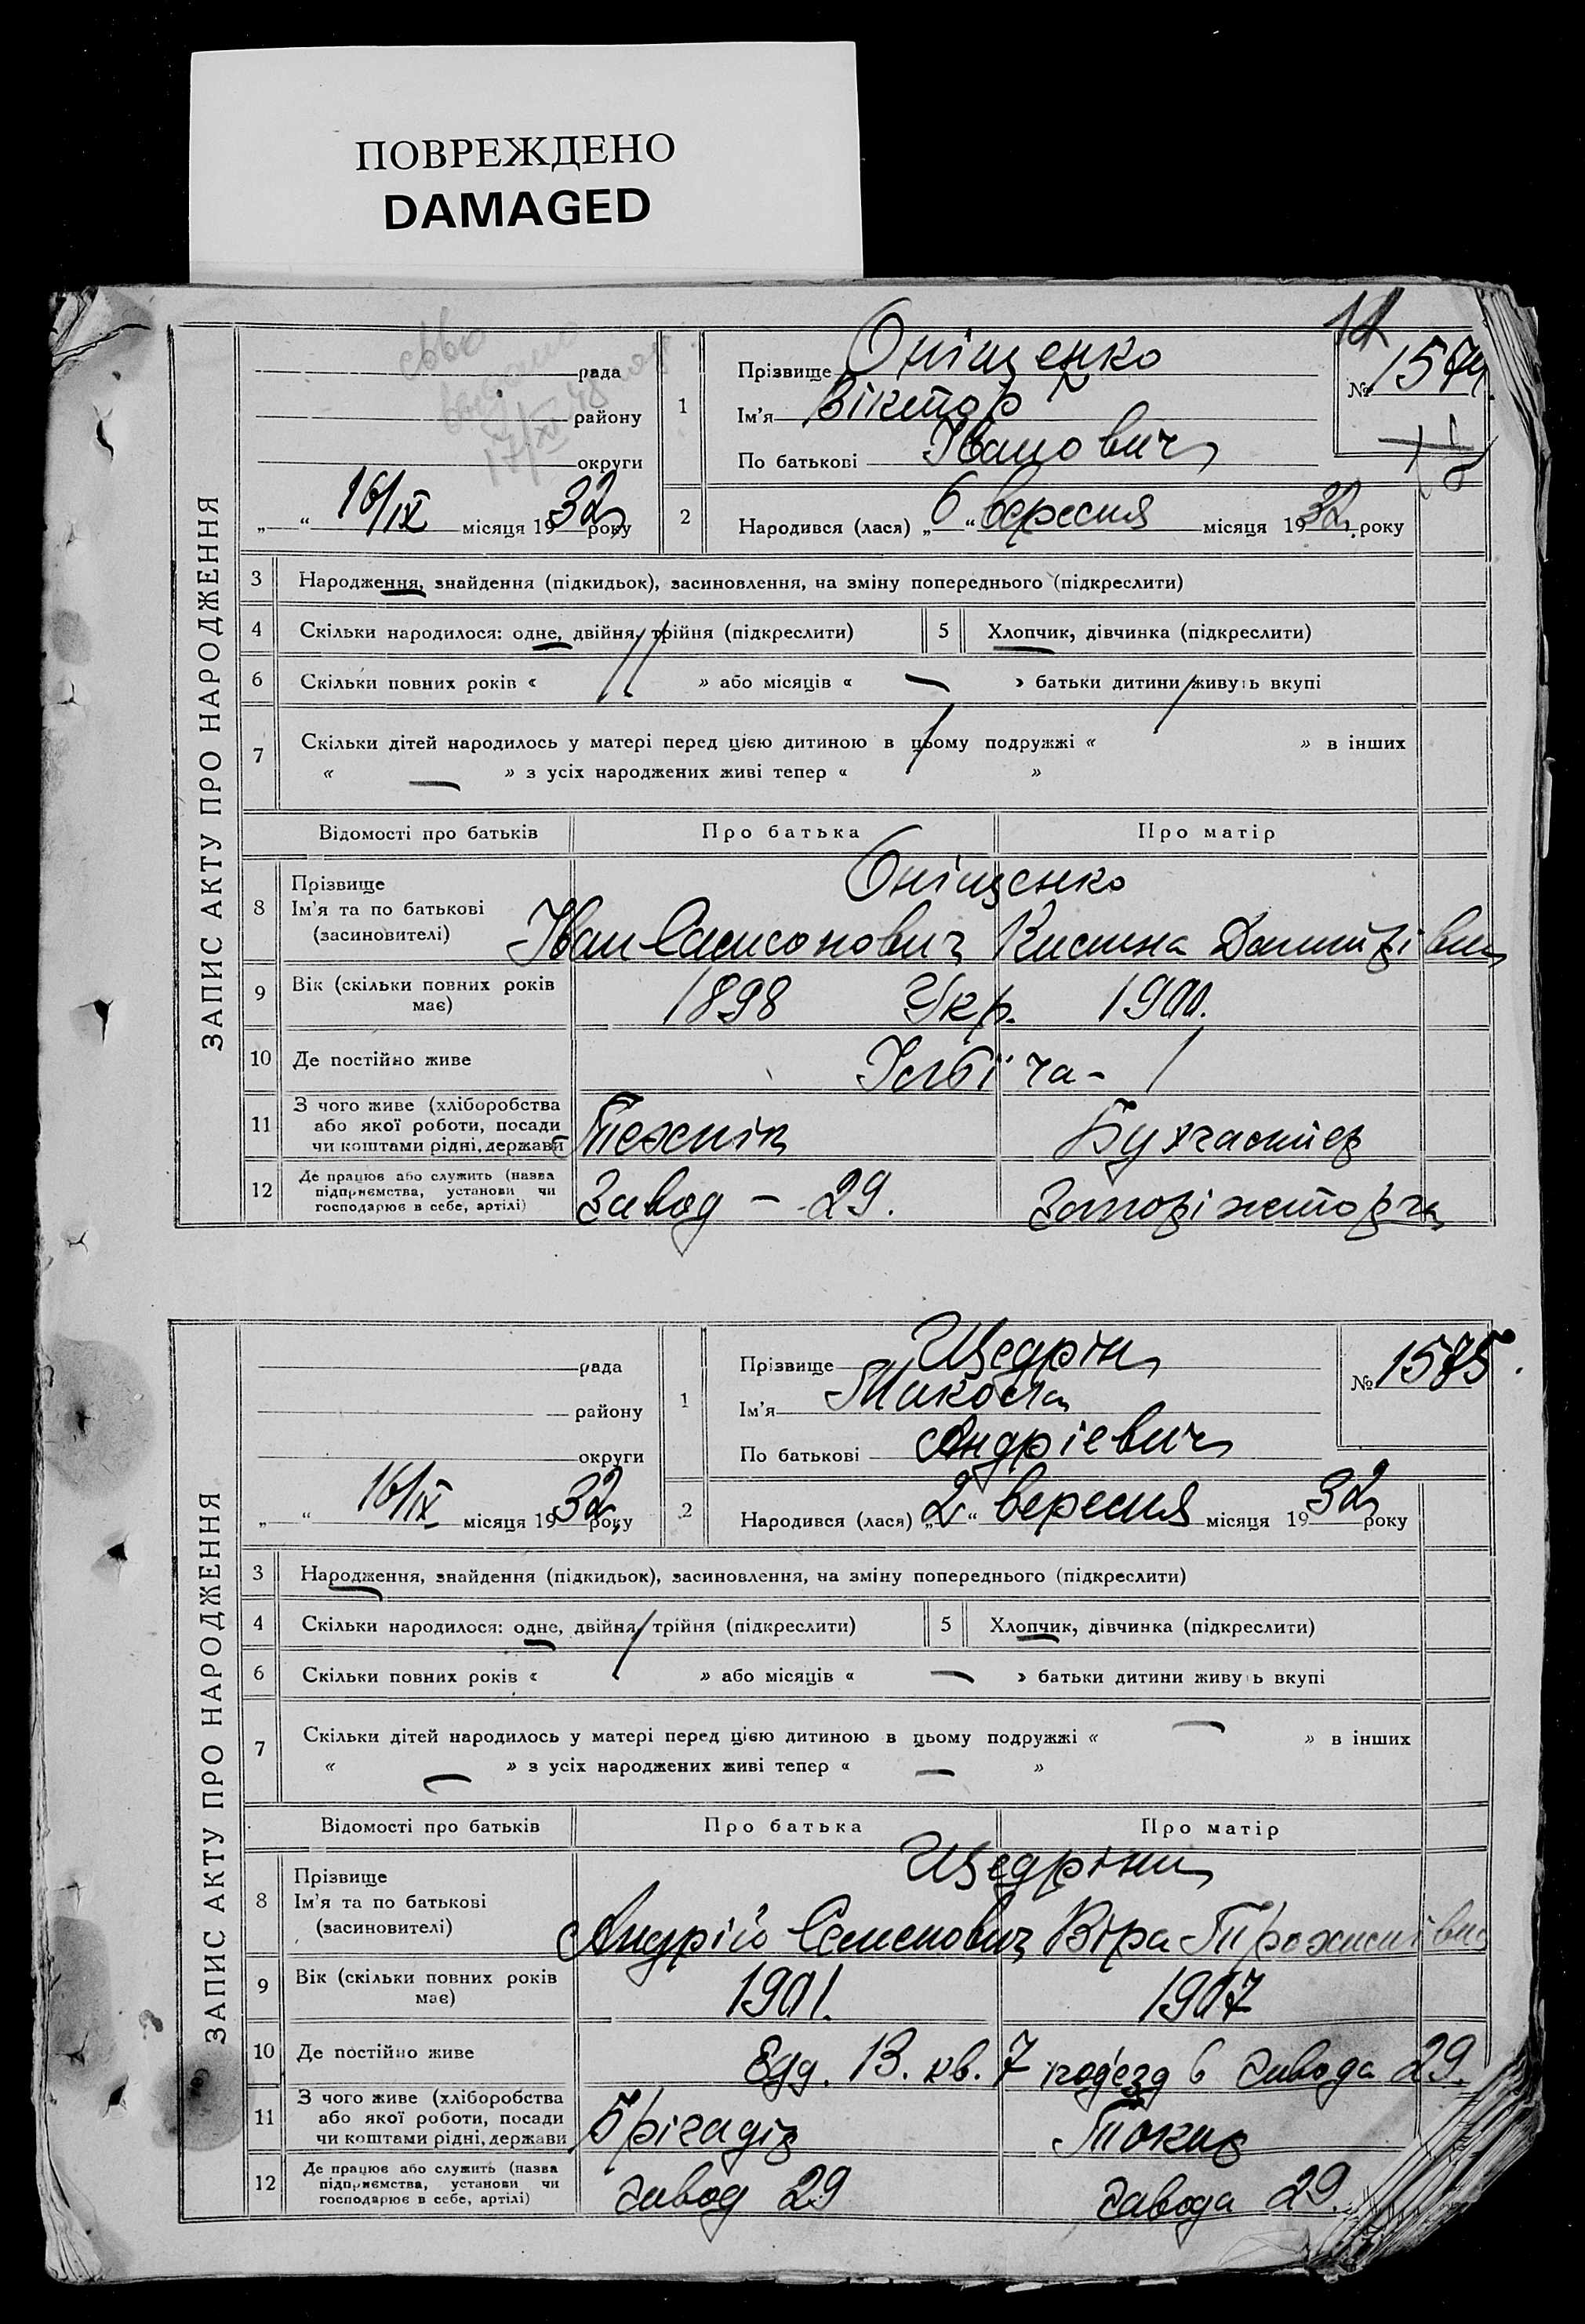 ПОВРЕЖДЕНО
DAMAGED
ЗАПИС АКТУ ПРО НАРОДЖЕННЯ
рада
району
округи
„ “ 16/IX місяця 1932 року
1 Прізвище Оніщенко
Ім’я Віктор
По батькові Іванович
№ 1574
2 Народився (лася) „6“ вересня місяця 1932 року
3 Народження, знайдення (підкидьок), засиновлення, на зміну попереднього (підкреслити)
4 Скільки народилося: одне, двійня, трійня (підкреслити) 5 Хлопчик, дівчинка (підкреслити)
6 Скільки повних років « » або місяців « — » батьки дитини живуть вкупі
7 Скільки дітей народилось у матері перед цією дитиною в цьому подружжі « » в інших
« — » з усіх народжених живі тепер « »
Відомості про батьків Про батька Про матір
8 Прізвище Оніщенко
Ім’я та по батькові Іван Самсонович
(засиновителі)
9 Вік (скільки повних років має) 1898 Укр. 1900.
10 Де постійно живе
11 З чого живе (хліборобства або якої роботи, посади чи коштами рідні, держави Технік Бухгалтер
12 Де працює або служить (назва підприємства, установи чи господарює в себе, артілі) Завод – 29. Запоріжторга
ЗАПИС АКТУ ПРО НАРОДЖЕННЯ
рада
району
округи
„ “ 16/IX місяця 1932 року
1 Прізвище Щедрін
Ім’я Микола
По батькові Андрієвич
№ 1575
2 Народився (лася) „2“ вересня місяця 1932 року
3 Народження, знайдення (підкидьок), засиновлення, на зміну попереднього (підкреслити)
4 Скільки народилося: одне, двійня, трійня (підкреслити) 5 Хлопчик, дівчинка (підкреслити)
6 Скільки повних років « » або місяців « — » батьки дитини живуть вкупі
7 Скільки дітей народилось у матері перед цією дитиною в цьому подружжі « — » в інших
« — » з усіх народжених живі тепер « — »
Відомості про батьків Про батька Про матір
8 Прізвище Щедріни
Ім’я та по батькові Андрій Семенович Віра
(засиновителі)
9 Вік (скільки повних років має) 1901. 1907
10 Де постійно живе 13. кв. 7 под'езд 6 завода 29.
11 З чого живе (хліборобства або якої роботи, посади чи коштами рідні, держави Брігадір Токар
12 Де працює або служить (назва підприємства, установи чи господарює в себе, артілі) завод 29 завода 29.